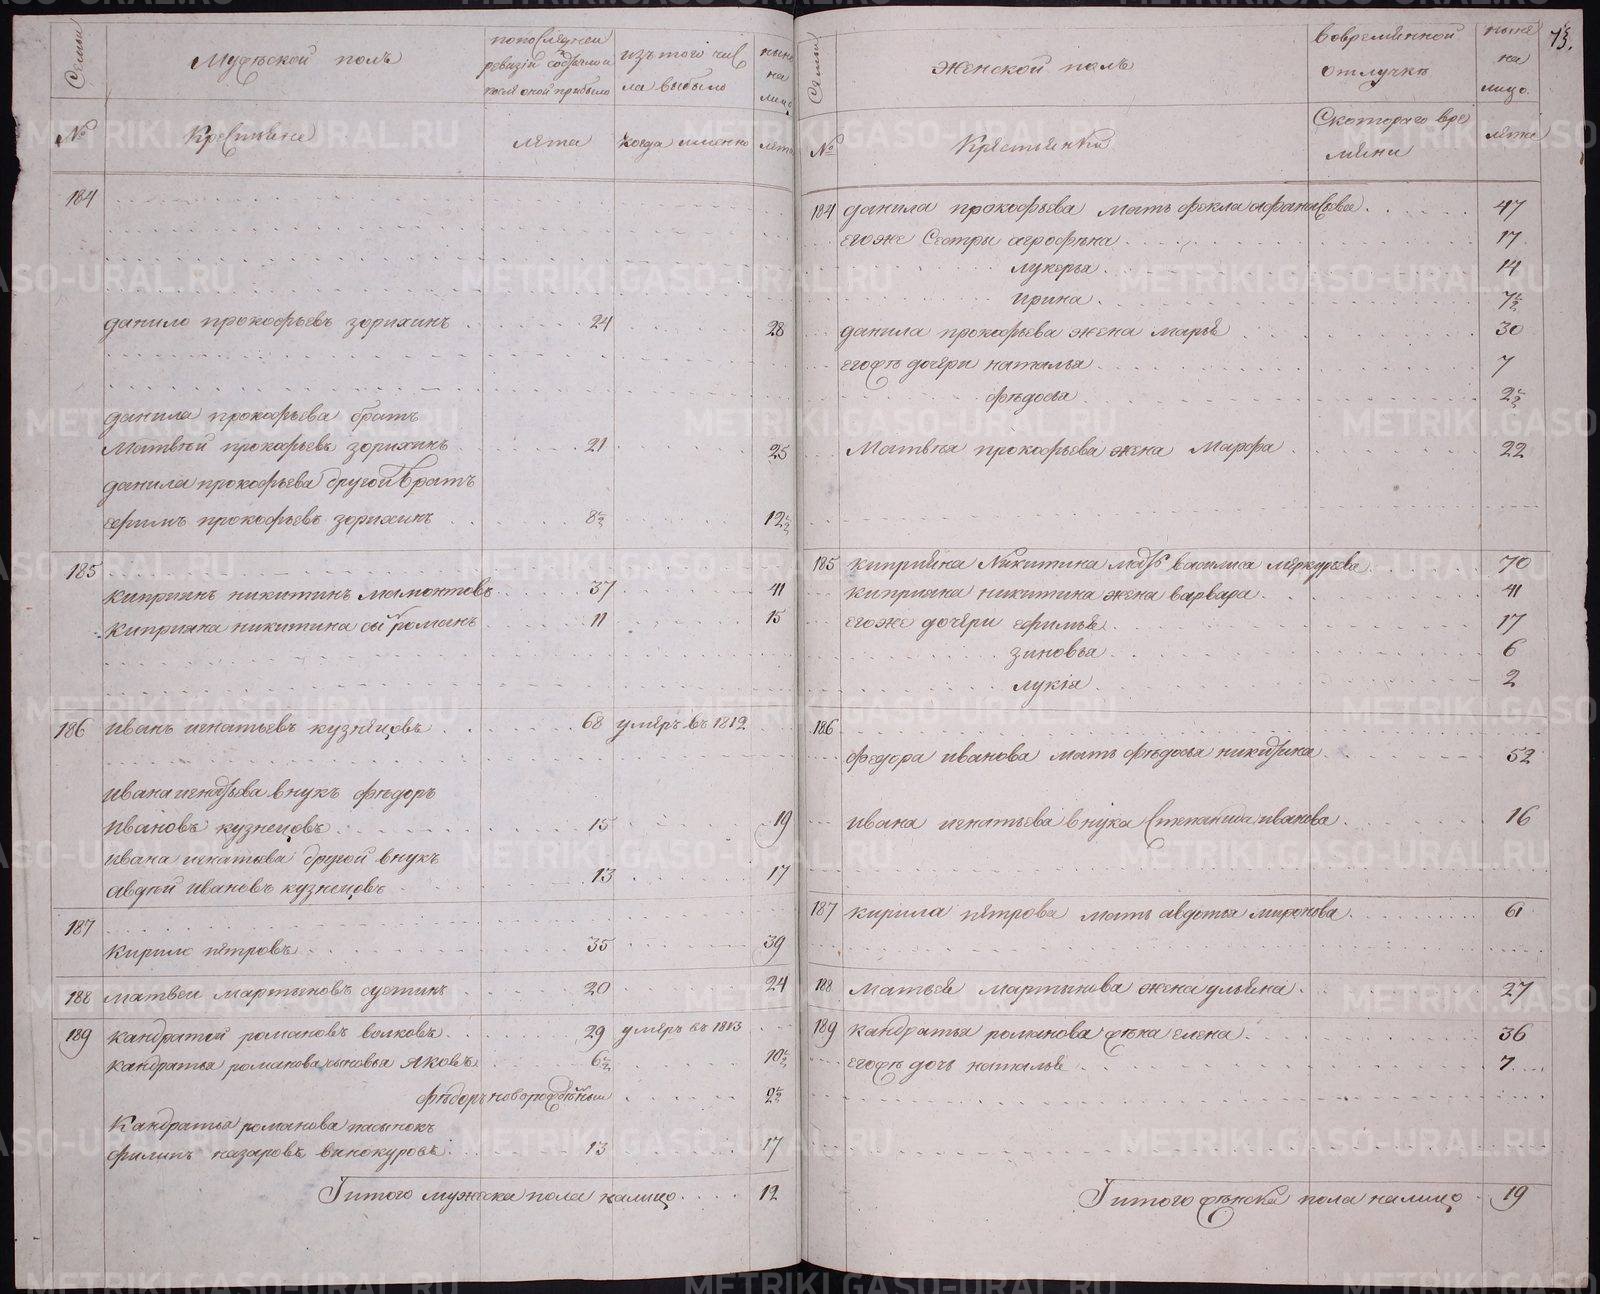 Семьи
Мужеской полъ
попоследнеи
ревизіи состояло и
после оной прибыло
изътого чис
ла выбыло
ныне
на
лицо
№
Крестьяне
лета
когда имянно
лета
184
данило прокофьевъ зорихинъ 24 28
данила прокофьева братъ
Матвей прокофьевъ зорихинъ 21 25
данила прокофьева другой братъ
ефимъ прокофьевъ зорихинъ 8½ 12½
185
киприянъ никитинъ мамонтовъ 37 41
Киприяна никитина сынъ романъ 11 15
186 иванъ игнатьевъ кузнецовъ 68 умеръ въ 1812
ивана игнатьева внукъ федоръ
ивановъ кузнецовъ 15 19
ивана игнатьева другой внукъ
авдей ивановъ кузнецовъ 13 17
187
Кирило петровъ 35 39
188 матвеи мартыновъ сустинъ 20 24
189 кандратей романовъ волковъ 29 умеръ въ 1813
кандратья романова сыновья яковъ 6½ 10½
федоръ новорожденныи 2½
Кандратья романова пасынокъ
филипъ назаровъ винокуровъ 13 17
Итого мужеска пола налицо 12
75.
Семьи
Женской полъ
вовременной
отлучке
ныне
на
лицо
№
Крестьянки
Скотораго вре
мяни
лета
184 данила прокофьева мать фекла афанасьева 47
егоже Сестры агрофена 17
лукерья 14
ирина 7½
данила прокофьева жена марья 30
егожъ дочери наталья 7
федосья 2½
Матвея прокофьева жена Марфа 22
185 киприяна Никитина мать василиса меркурьева 70
киприяна никитина жена варвара 41
егоже дочери ефимья 17
зиновья 6
лукія 2
186
федора иванова мать федосья никитина 52
ивана игнатьева внука Степанида иванова 16
187 кирила петрова мать авдотья миронова 61
188 матвея мартынова жена ульяна 27
189 кандратья романова жена елена 36
егожъ дочь наталья 7
Итого женска пола налицо 19
METRIKI.GASO-URAL.RU